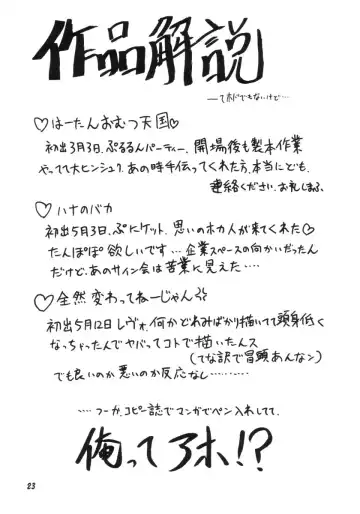 作品解説
――てホドでもないけど‥‥
♡はーたんおむつ天国♡
初出3月3日、ぷるるんパーティー、開場後も製本作業
やってて大ヒンシュク。あの時手伝ってくれた方、本当にども。
連絡ください、お礼しまふ。
♡ハナのバカ
初出5月3日、ぷにケット。思いのホカ人が来てくれた♡
たんぽぽ欲しいです…企業スペースの向かいだったん
だけど、あのサイン会は苦業に見えた‥‥
♡全然変わってねーじゃん
初出5月12日レヴォ。何かどれみばかり描いてて頭身低く
なっちゃったんでヤバってコトで描いたんス
(てな訳で冒頭あんな)
でも良いのか悪いのか反応なし‥‥‥‥
‥‥つーか、コピー誌でマンガでペン入れしてて、
俺ってアホ!?
23